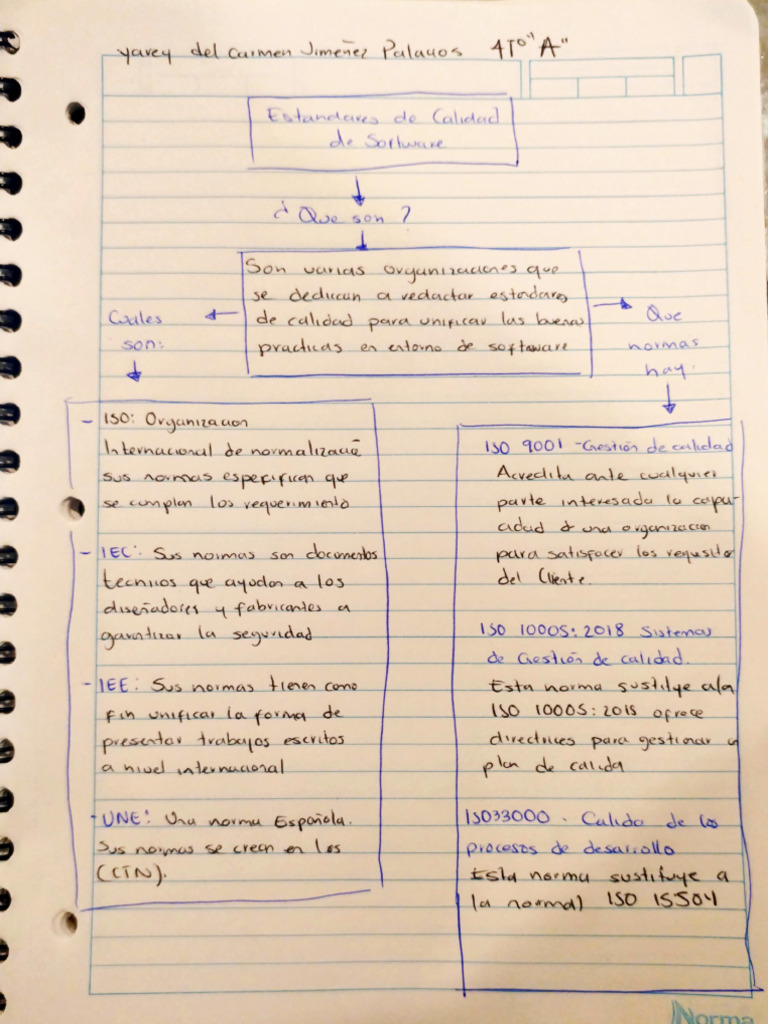 yarey del Carmen Jimeñez Palacios 4TO "A"
Estandares de Calidad
de Software
¿Que son?
Son varias organizaciones que
se dedican a redactar estandares
de calidad para unificar las buenas
practicas en entorno de software
Cuales
son:
- ISO: Organizacion
Internacional de normalizació
sus normas especifican que
se cumplan los requerimiento
- IEC: Sus normas son documentos
tecnicos que ayudan a los
diseñadores y fabricantes a
garantizar la seguridad
- IEE: Sus normas tienen como
fin unificar la forma de
presentar trabajos escritos
a nivel internacional
- UNE: Una norma Española.
Sus normas se crean en los
(CTN).
Que
normas
hay.
ISO 9001 - Gestión de calidad
Acredita ante cualquier
parte interesada la capa-
cidad d una organizacion
para satisfacer los requisitos
del Cliente.
ISO 10005:2018 Sistemas
de Gestión de calidad.
Esta norma sustituye a la
ISO 10005:2015 ofrece
directrices para gestionar
plan de calida
ISO33000 - Calida de los
procesos de desarrollo
Esta norma sustituye a
la norma) ISO 15504
Norma